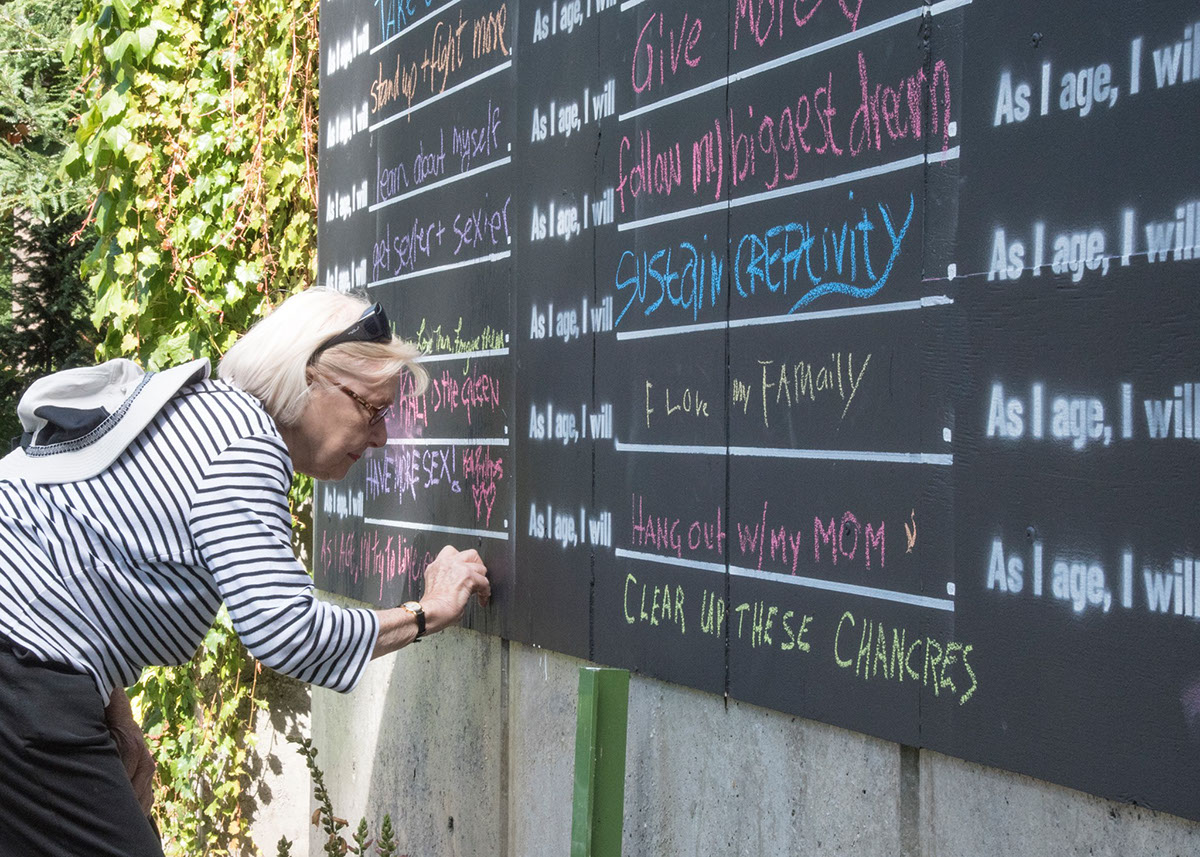 TAKE
As I age, I will stand up + fight more
As I age, I will learn about myself
As I age, I will get sexier + sexier
As I age, I will
Love Them, Forgive them
is the queen
HAVE MORE SEX!
As I age, I will
As I AGE, I'm Try To live
As I age, I will Give More
As I age, I will follow my biggest dream
As I age, I will Sustain CREAtivity
As I age, I will I Love my FAMaily
As I age, I will HANG OUT w/my MOM
As I age, I will
CLEAR UP THESE CHANCRES
As I age, I will
As I age, I will
As I age, I will
As I age, I will